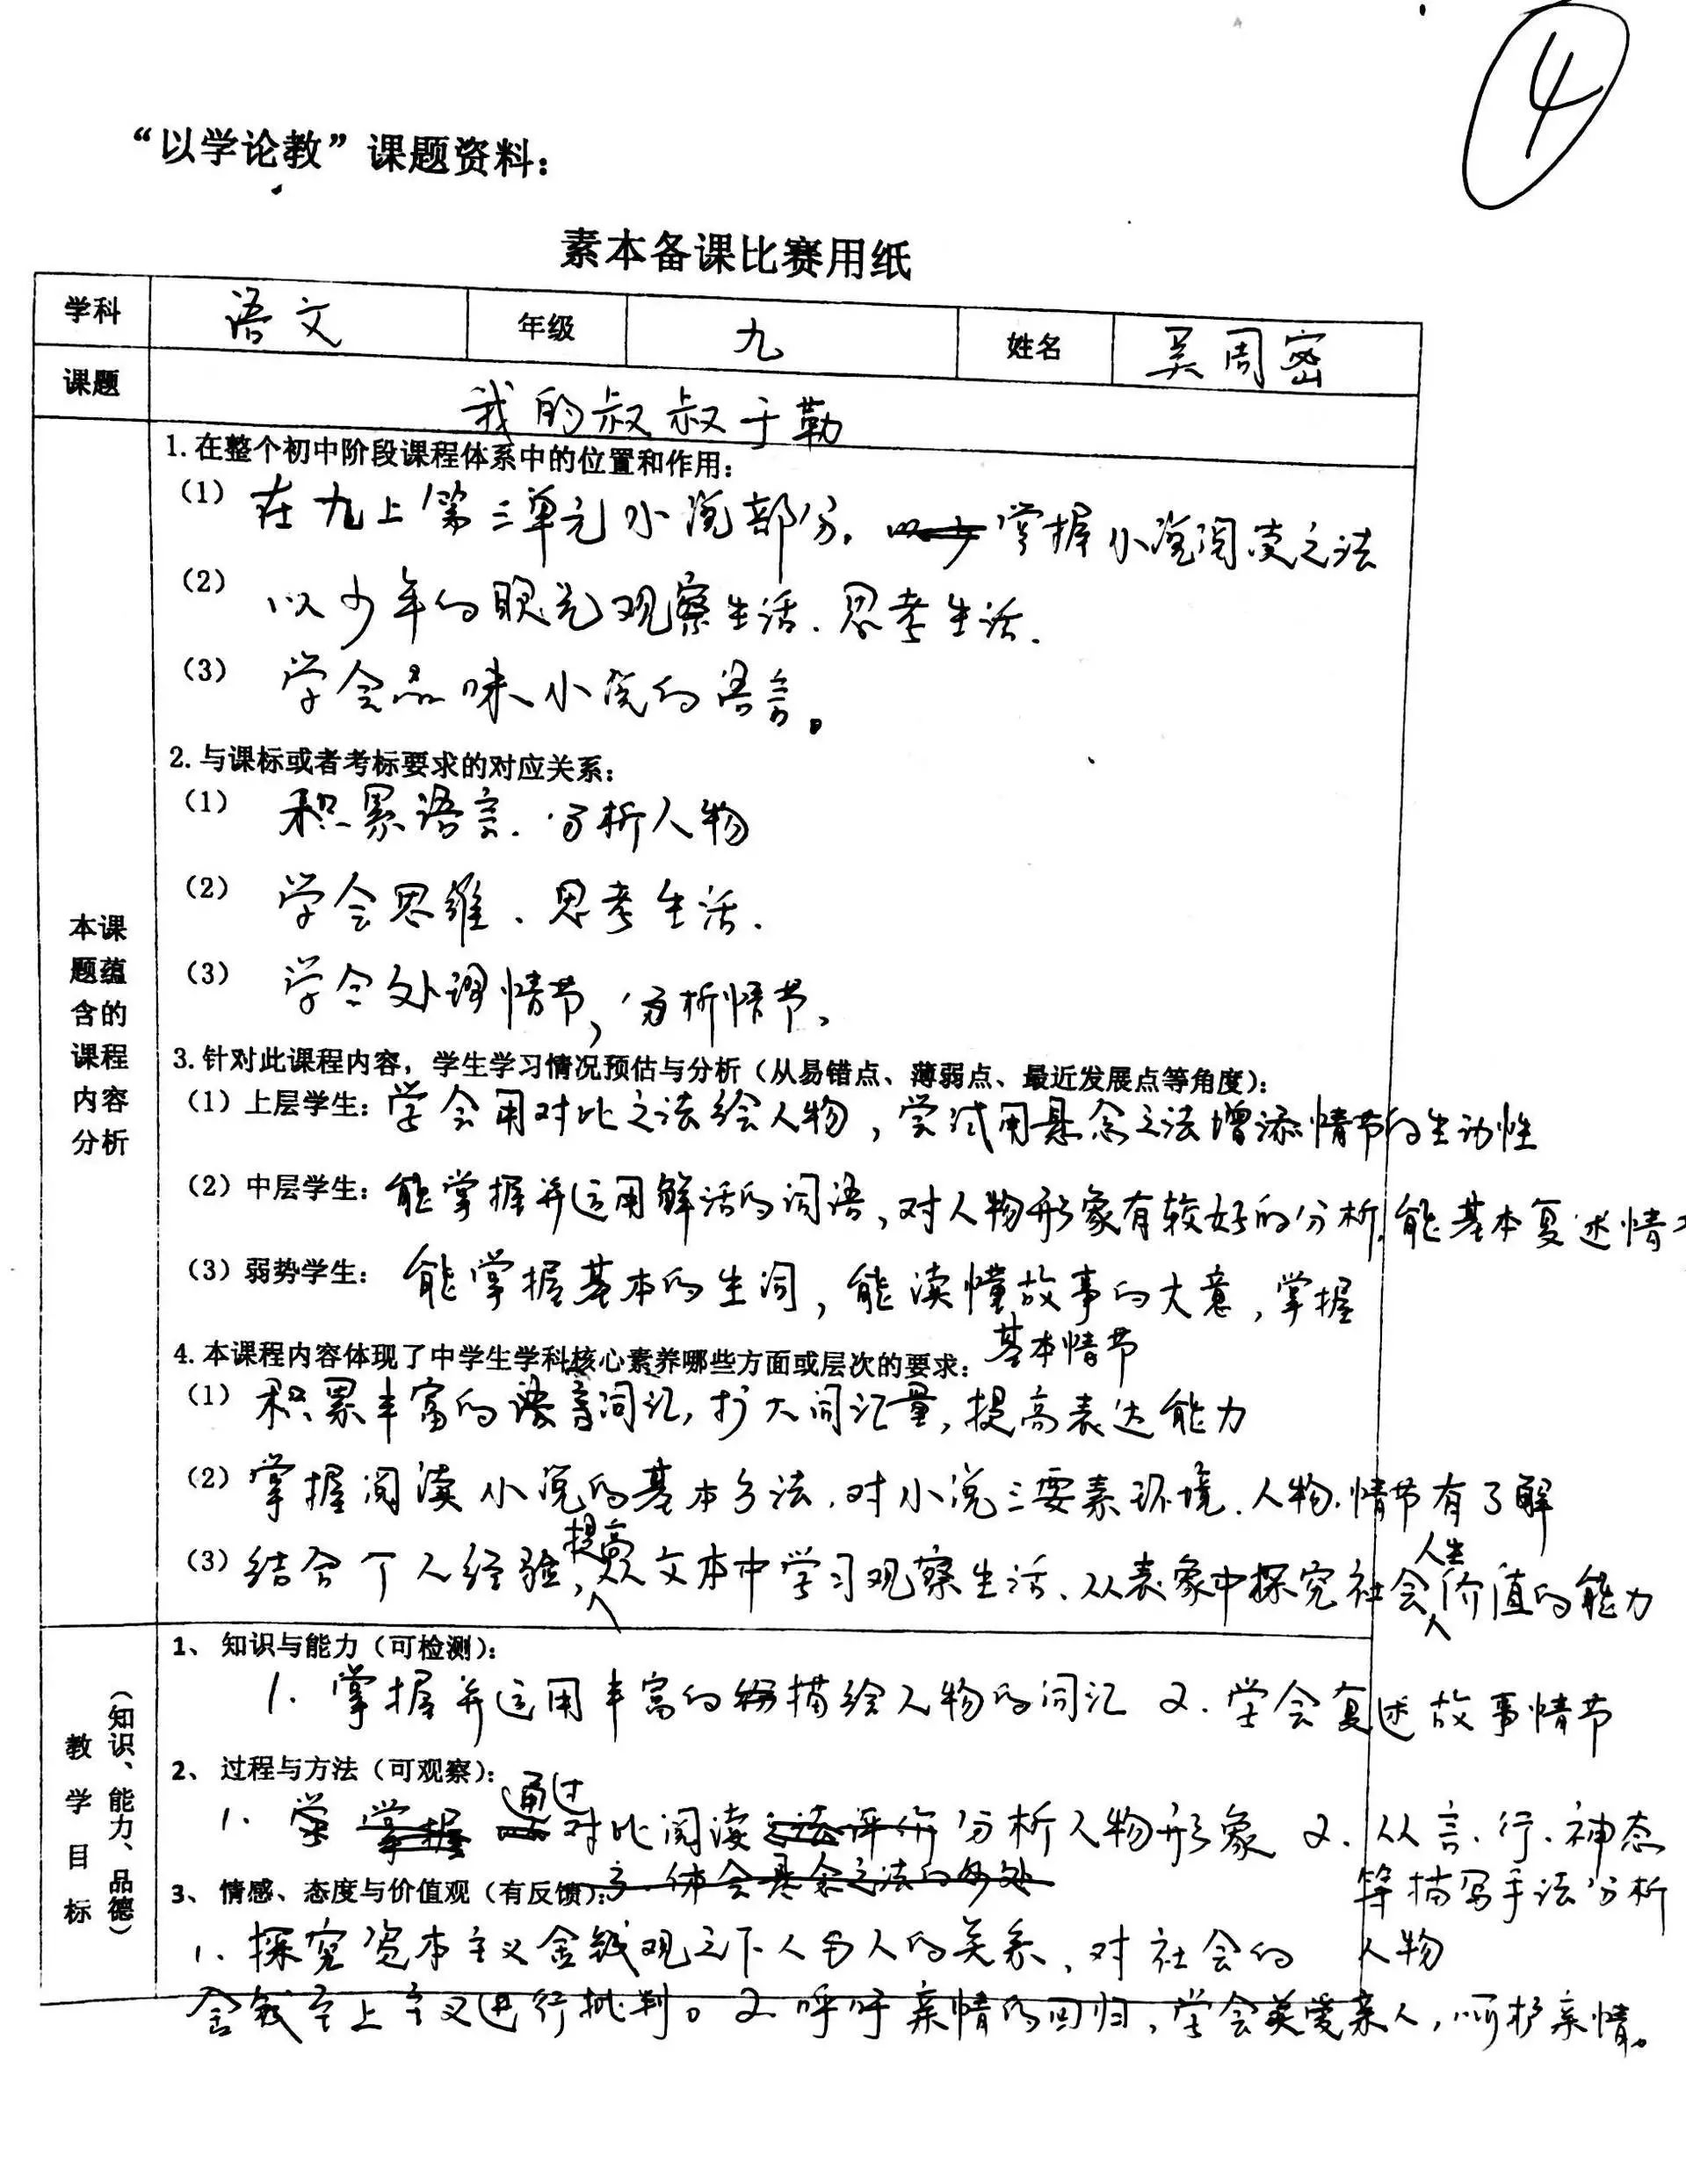 ④
“以学论教”课题资料：
素本备课比赛用纸
学科 语文 年级 九 姓名 吴周密
课题 我的叔叔于勒
本课题蕴含的课程内容分析
1.在整个初中阶段课程体系中的位置和作用：
（1）在九上第三单元小说部分。掌握小说阅读之法
（2）以少年的眼光观察生活、思考生活.
（3）学会品味小说的语言。
2.与课标或者考标要求的对应关系：
（1）积累语言、分析人物
（2）学会思维、思考生活.
（3）学会处理情节，分析情节。
3.针对此课程内容，学生学习情况预估与分析（从易错点、薄弱点、最近发展点等角度）：
（1）上层学生：学会用对比之法绘人物，尝试用悬念之法增添情节的生动性
（2）中层学生：能掌握并运用鲜活的词语，对人物形象有较好的分析，能基本复述情
（3）弱势学生：能掌握基本的生词，能读懂故事的大意，掌握
基本情节
4.本课程内容体现了中学生学科核心素养哪些方面或层次的要求：
（1）积累丰富的语言词汇，扩大词汇量，提高表达能力
（2）掌握阅读小说的基本方法，对小说三要素环境、人物、情节有了解
（3）结合个人经验，提高从文本中学习观察生活、从表象中探究社会人生价值的能力
教学目标（知识、能力、品德）
1、知识与能力（可检测）：
1. 掌握并运用丰富的描绘人物的词汇 2. 学会复述故事情节
2、过程与方法（可观察）：
1. 通过对比阅读分析人物形象 2. 从言、行、神态
等描写手法分析
人物
3. 体会悬念之法的妙处
3、情感、态度与价值观（有反馈）：
1. 探究资本主义金钱观之下人与人的关系，对社会的
金钱至上主义进行批判。2. 呼吁亲情的回归，学会关爱亲人，呵护亲情。